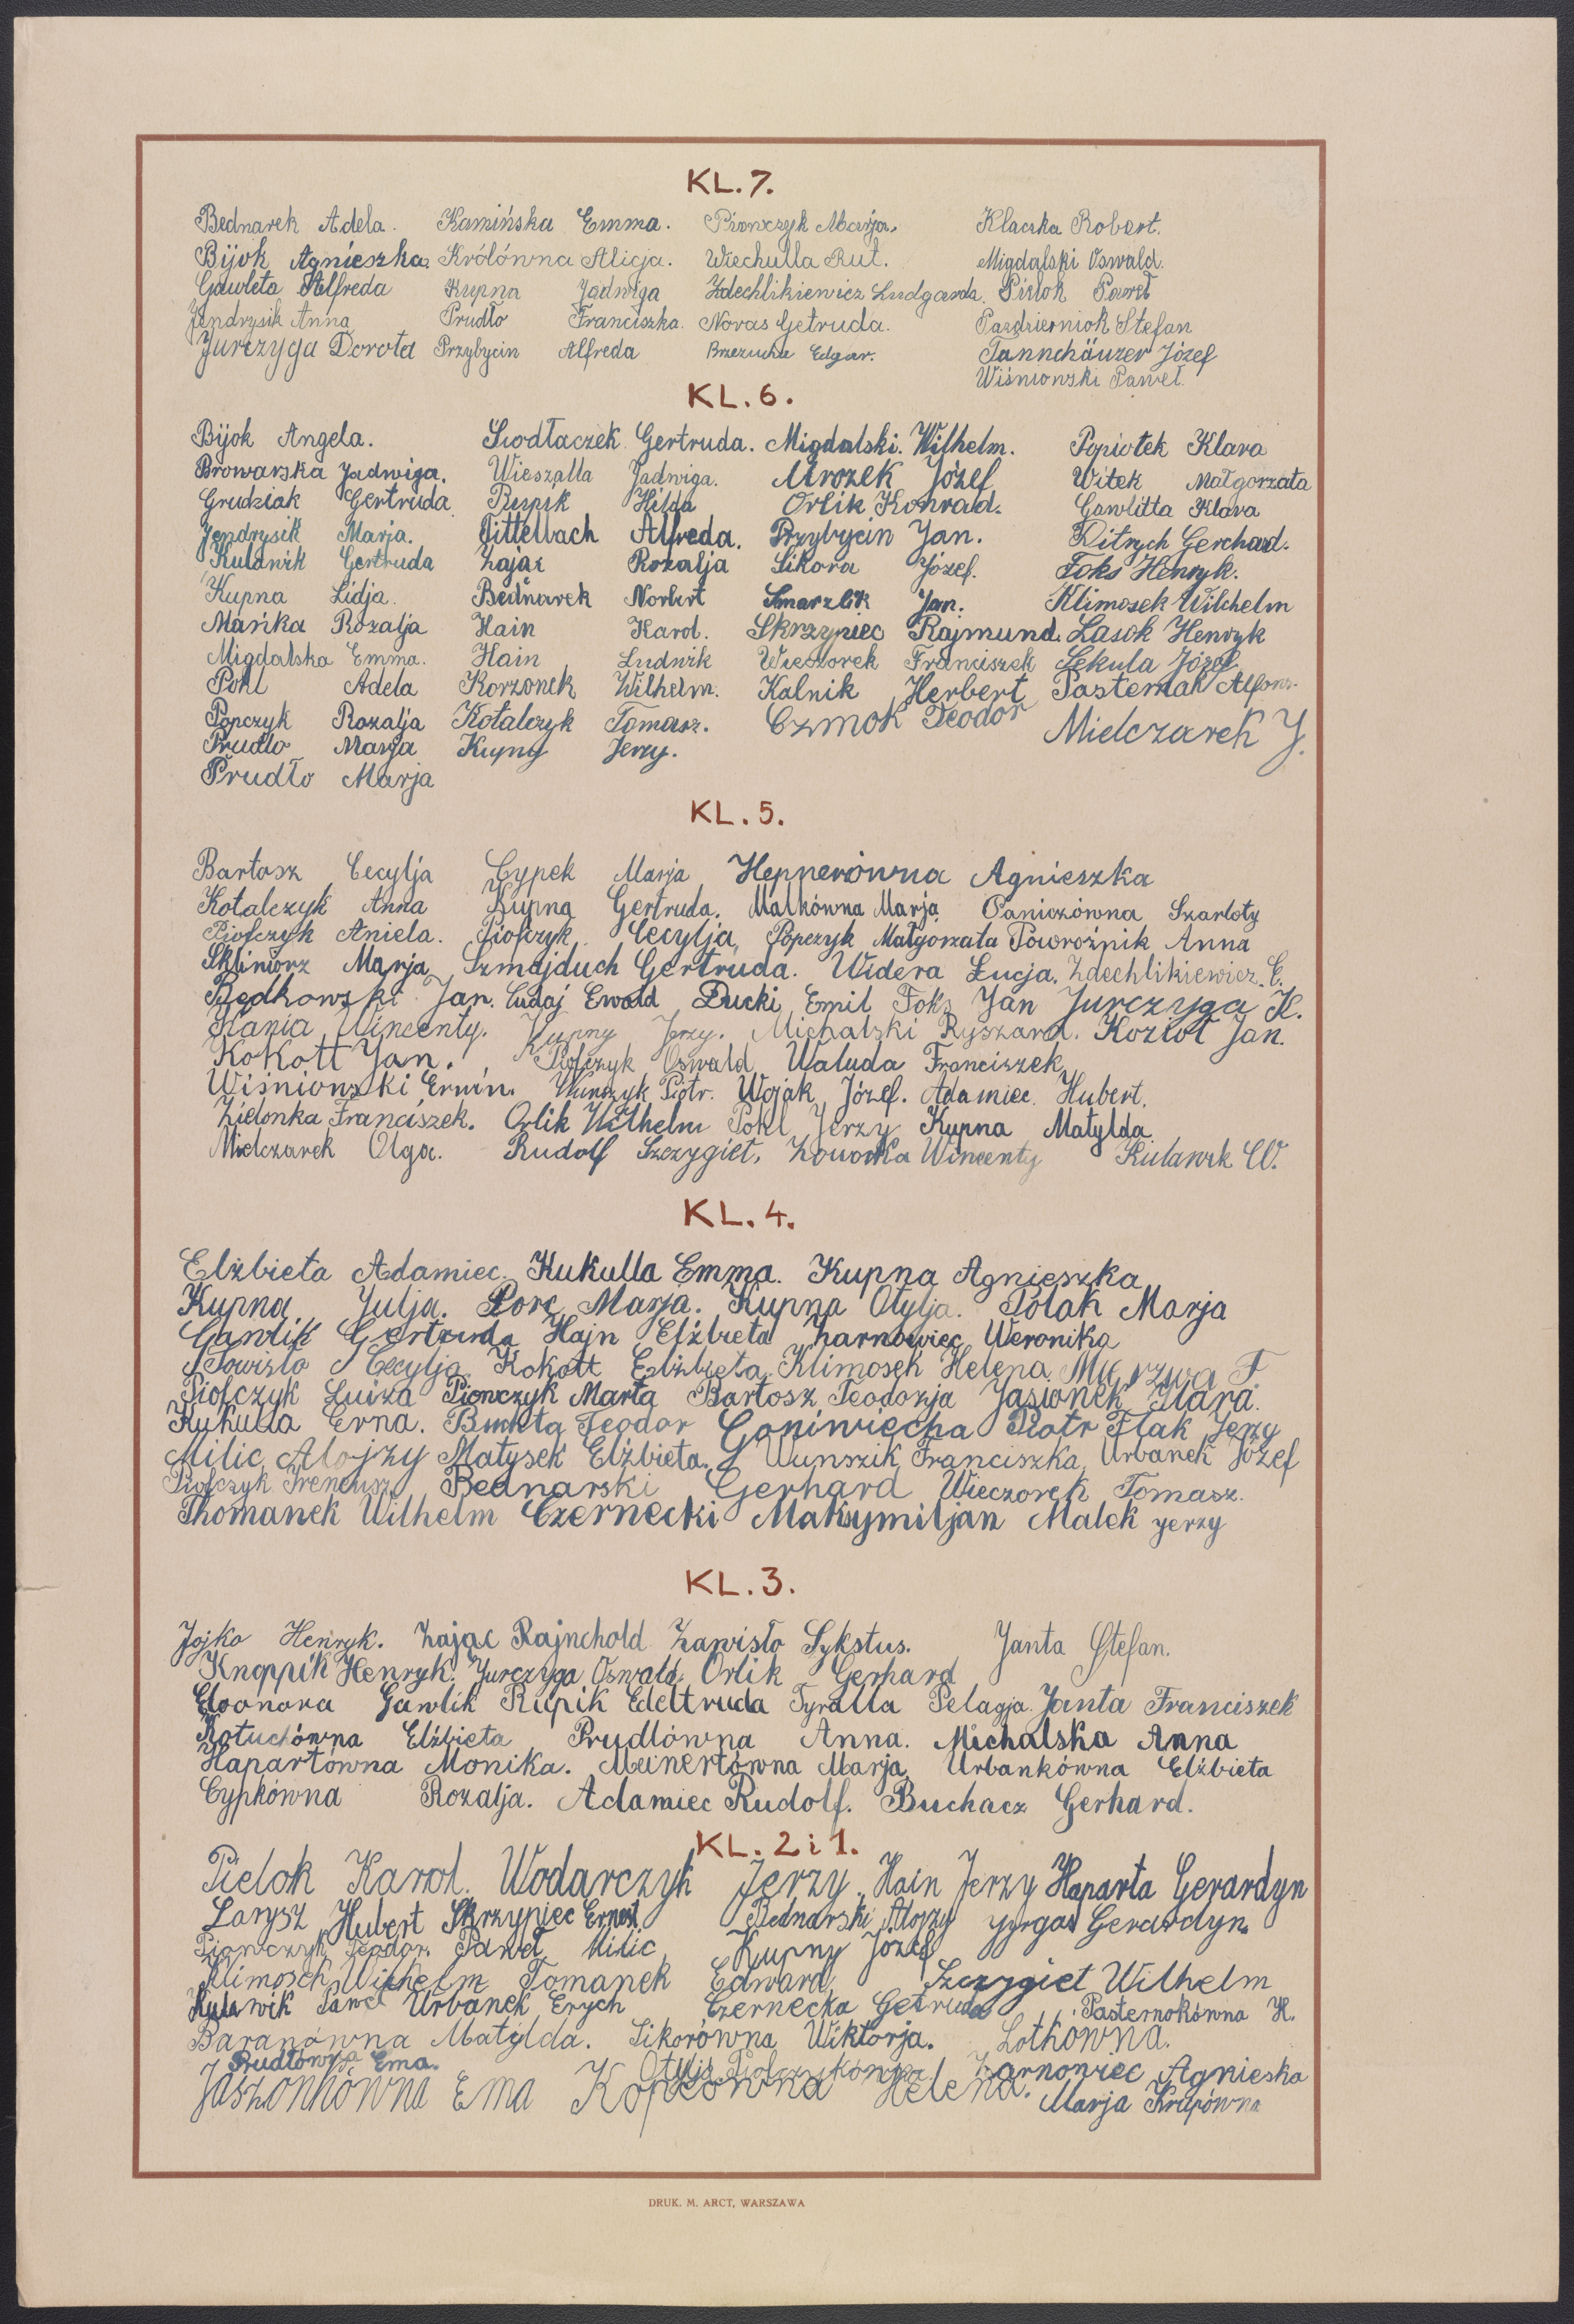 KL. 7.
Bednarek Adela. Kamińska Emma. Pionczyk Marja. Klaczka Robert.
Bijok Agnieszka. Królówna Alicja. Wiechulla Rut. Migdalski Oswald.
Gawleta Alfreda Kupna Jadwiga Zdechlikiewicz Ludgarda. Pielok Paweł
Jendrysik Anna Prudło Franciszka. Novas Getruda. Pazdzierniok Stefan
Jurczyga Dorota Przybycin Alfreda Brzezucha Edgar. Tannchäuzer Józef
Wiśniowski Paweł.
KL. 6.
Bijok Angela. Siodłaczek Gertruda. Migdalski. Wilhelm. Popiołek Klara
Browarska Jadwiga. Wieszalla Jadwiga. Mrozek Józef Witek Małgorzata
Grudziak Gertruda Rupik Hilda Orlik Konrad. Gawlitta Klara
Jendrysik Marja. Tittelbach Alfreda. Przybycin Jan. Ditrych Gerchard.
Kulawik Gertruda Zając Rozalja Sikora Józef. Foks Henryk.
Kupna Lidja. Bednarek Norbert Smarzlik Jan. Klimosek Wilchelm
Mańka Rozalja Hain Karol. Skrzypiec Rajmund. Lasok Henryk
Migdalska Emma. Hain Ludwik Wieczorek Franciszek Sekula Józef
Pokl Adela Korzonek Wilhelm. Kalnik Herbert Pasternak Alfons.
Popczyk Rozalja Kotalczyk Tomasz. Czmok Teodor Mielczarek J.
Prudlo Marja Kupny Jerzy.
Prudło Marja
KL. 5.
Bartosz Cecylja Cypek Marja Hepnerówna Agnieszka
Kotalczyk Anna Kupna Gertruda. Malkówna Marja Paniczówna Szarloty
Piofczyk Aniela. Piofczyk Cecylja, Popczyk Małgorzata Powroźnik Anna
Skliniorz Marja Szmajduch Gertruda. Widera Łucja. Zdechlikiewicz C.
Będkowski Jan. Cudaj Ewald Ducki Emil Foks Jan Jurczyga K.
Kania Wincenty. Kupny Jerzy. Michalski Ryszard. Kozioł Jan.
Kokott Jan. Piofczyk Oswald Waluda Franciszek
Wiśniowski Erwin. Wunszyk Piotr. Wojak Józef. Adamiec Hubert.
Zielonka Franciszek. Orlik Wilhelm Pokl Jerzy Kupna Matylda.
Mielczarek Olga. Rudolf Szczygieł, Zowońka Wincenty Kulawik W.
KL. 4.
Elżbieta Adamiec. Kukulla Emma. Kupna Agnieszka
Kupna Julja. Porc Marja. Kupna Otylja. Polak Marja
Gawlik Gertruda Hajn Elżbieta Żarnowiec Weronika
Powisło Cecylja Kokott Elżbieta Klimosek Helena Murzwa F.
Piofczyk Luiza Pionczyk Marta Bartosz Teodozja Jasionek Klara.
Kukulla Erna. Buchta Teodor Goniwiecha Piotr Flak Jerzy
Milic Alojzy Matysek Elżbieta. Wunszik Franciszka, Urbanek Józef
Piofczyk Ireneusz Bednarski Gerhard Wieczorek Tomasz.
Thomanek Wilhelm Czernecki Maksymiljan Malek Jerzy
KL. 3.
Jojko Henryk. Zając Rajnchold Zawisło Sykstus. Janta Stefan.
Knoppik Henryk. Jurczyga Oswald. Orlik Gerhard
Eleonora Gawlik Rupik Edeltruda Tyralla Pelagja. Janta Franciszek
Kotuchówna Elżbieta Prudlówna Anna. Michalska Anna
Hapartówna Monika. Meinertówna Marja Urbankówna Elżbieta
Cypkówna Rozalja. Adamiec Rudolf. Buchacz Gerhard.
KL. 2 i 1.
Pielok Karol. Wodarczyk Jerzy. Hain Jerzy Haparta Gerardyn
Larysz Hubert Skrzypiec Ernest Bednarski Alojzy Gerardyn.
Pionczyk Teodor. Paweł Milic Kupny Józef
Klimosek Wilhelm Tomanek Edward Szczygieł Wilhelm
Kulawik Paweł Urbanek Erych Czernecka Getruda Pasternokówna H.
Baranówna Matylda. Sikorówna Wiktorja. Lothówna.
Prudlówna Ema. Otylja Piofczykówna Żarnowiec Agnieska
Jaszonkówna Ema Kopcówna Helena. Marja Krupówna
DRUK. M. ARCT, WARSZAWA